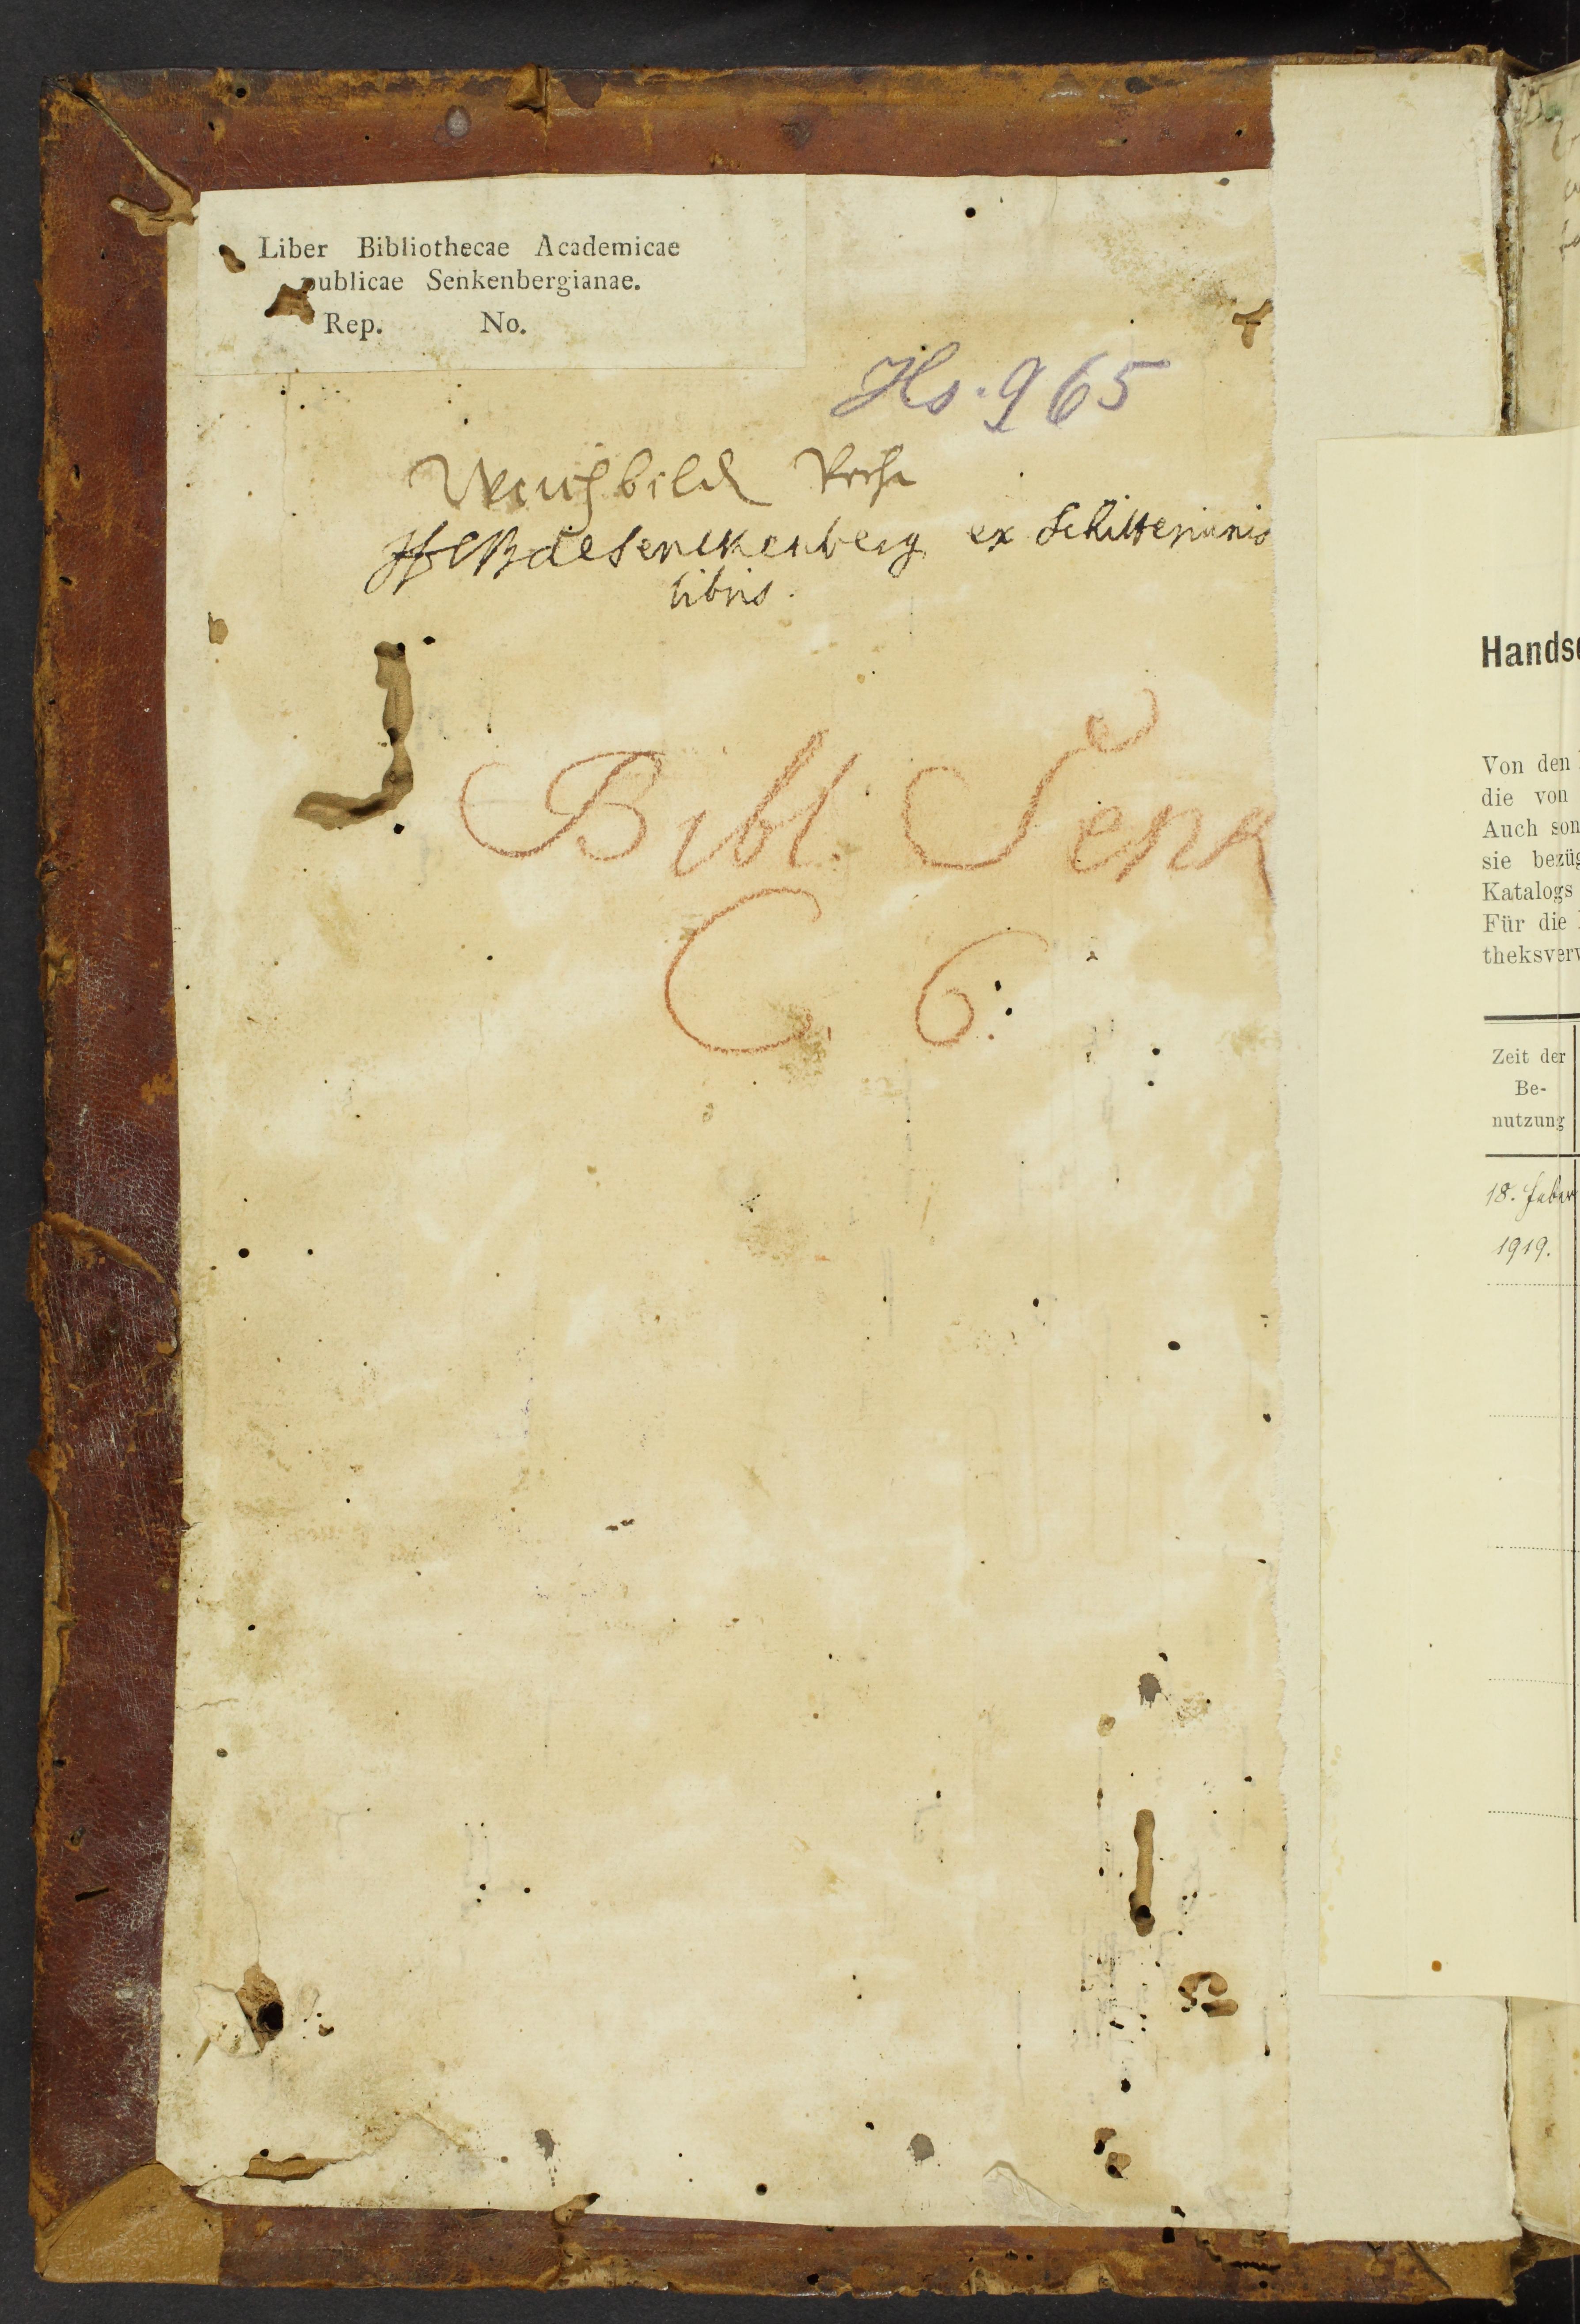 Liber Bibliothecae Academicae
publicae Senkenbergianae.
Rep. No.
Hs. 965
Weichbild
de Senckenberg ex Schilterianis
libris.
Bibl. Senk
C. 6.
Hands
Von den
die von
Auch son
sie bezüg
Katalogs
Für die
theksverw
Zeit der
Be-
nutzung
18. Febr
1919.